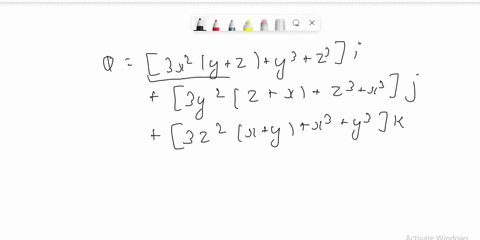 Q = [3x² (y+z) + y³ + z³] i
+ [3y² [z+x) + z³+x³] j
+ [3z² (x+y) + x³ + y³] k
Activate Windows